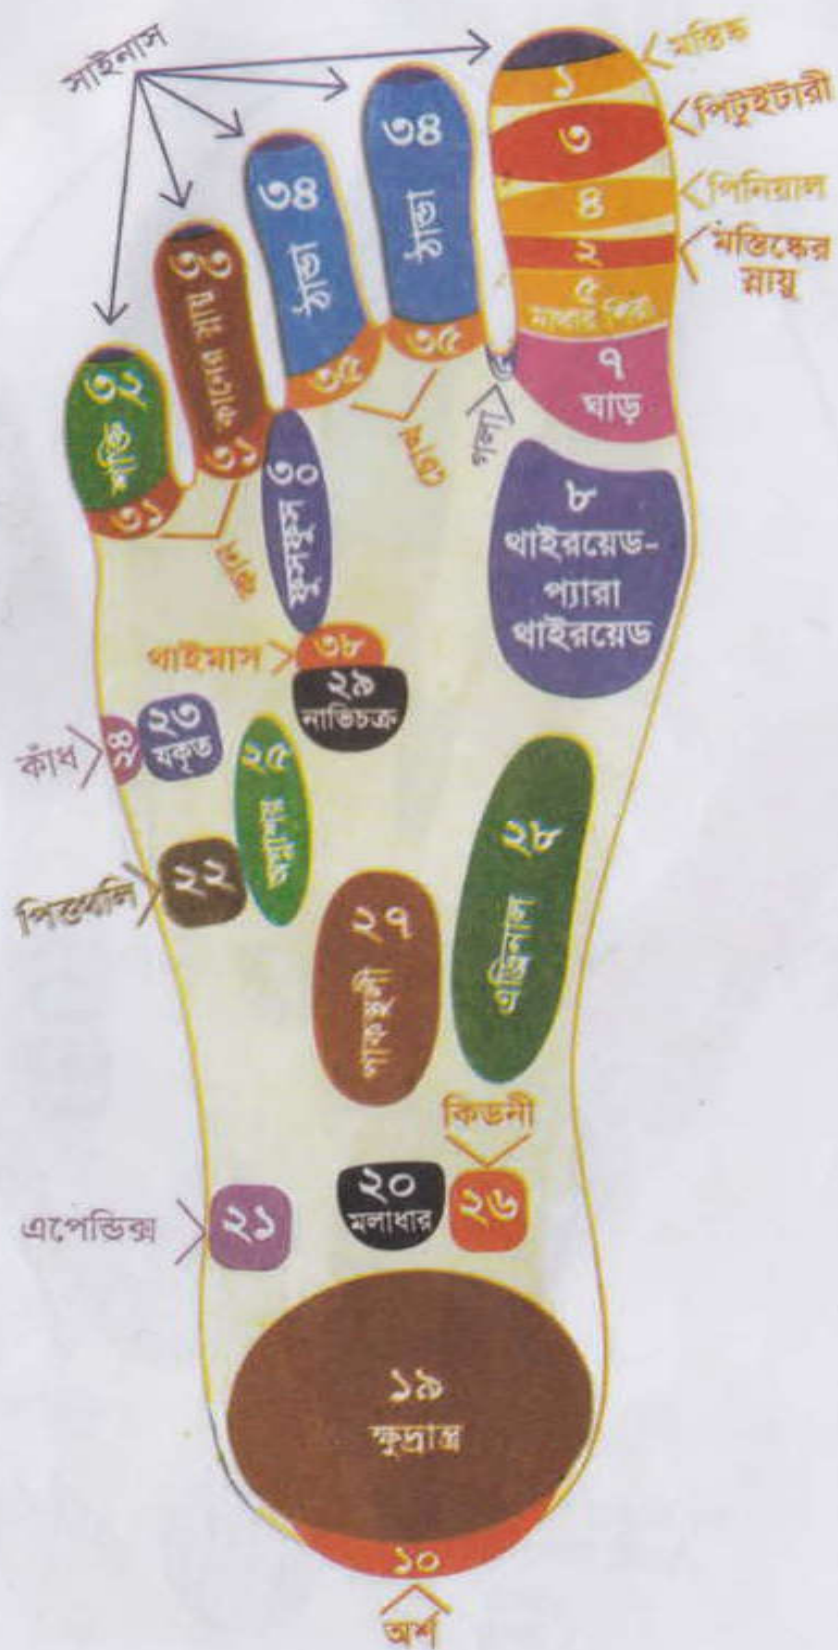 সাইনাস
মস্তিষ্ক
১
পিটুইটারী
৩
পিনিয়াল
৪
মস্তিষ্কের
স্নায়ু
২
৫
মাথার শিরা
৭
ঘাড়
৬
গলা
৩৪
ঠান্ডা
৩৫
৩৪
ঠান্ডা
৩৫
চোখ
৩৩
কানের স্নায়ু
৩১
৩২
শক্তি
৩১
কান
৩০
ফুসফুস
৮
থাইরয়েড-
প্যারা
থাইরয়েড
থাইমাস
৩৮
২৯
নাভিচক্র
কাঁধ
২৪
২৩
যকৃত
২৫
অগ্নাশয়
২২
পিত্তথলি
২৭
পাকস্থলী
২৮
এড্রিনাল
কিডনী
২৬
২০
মলাধার
২১
এপেন্ডিক্স
১৯
ক্ষুদ্রান্ত্র
১০
অর্শ